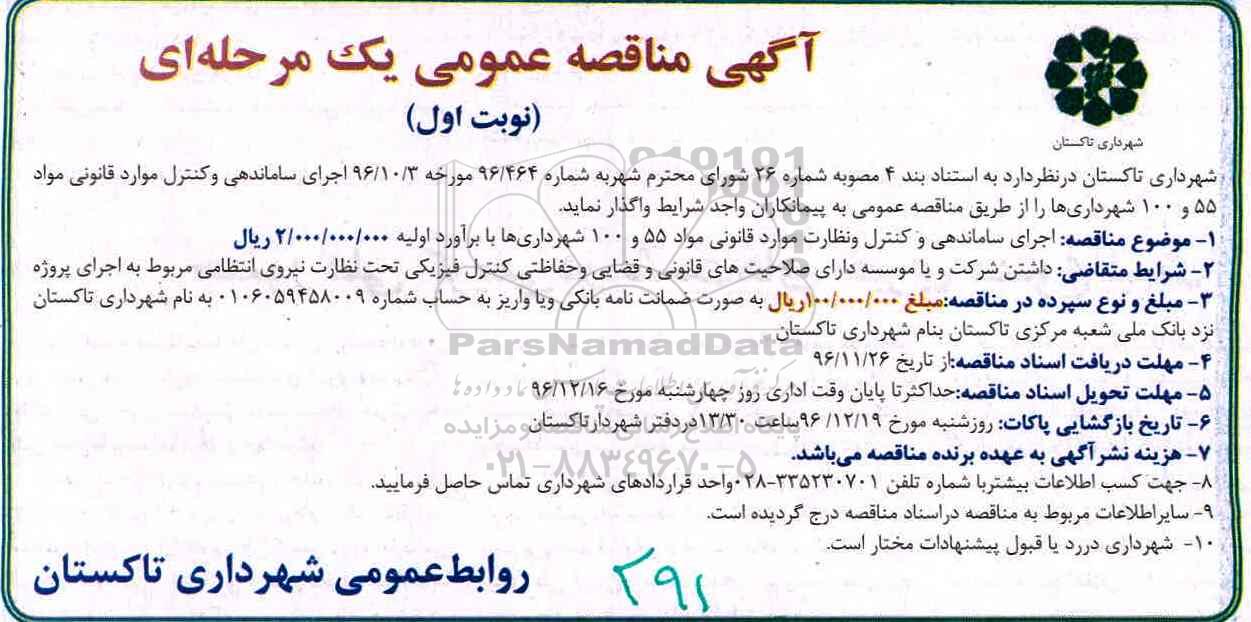 آگهی مناقصه عمومی یک مرحله‌ای
(نوبت اول)
شهرداری تاکستان
شهرداری تاکستان درنظردارد به استناد بند ۴ مصوبه شماره ۲۶ شورای محترم شهربه شماره ۹۶/۴۶۴ مورخه ۹۶/۱۰/۳ اجرای ساماندهی وکنترل موارد قانونی مواد
۵۵ و ۱۰۰ شهرداری‌ها را از طریق مناقصه عمومی به پیمانکاران واجد شرایط واگذار نماید.
۱- موضوع مناقصه: اجرای ساماندهی و کنترل ونظارت موارد قانونی مواد ۵۵ و ۱۰۰ شهرداری‌ها با برآورد اولیه ۲/۰۰۰/۰۰۰/۰۰۰ ریال
۲- شرایط متقاضی: داشتن شرکت و یا موسسه دارای صلاحیت های قانونی و قضایی وحفاظتی کنترل فیزیکی تحت نظارت نیروی انتظامی مربوط به اجرای پروژه
۳- مبلغ و نوع سپرده در مناقصه:مبلغ ۱۰۰/۰۰۰/۰۰۰ریال به صورت ضمانت نامه بانکی ویا واریز به حساب شماره ۰۱۰۶۰۵۹۴۵۸۰۰۹ به نام شهرداری تاکستان
نزد بانک ملی شعبه مرکزی تاکستان بنام شهرداری تاکستان
۴- مهلت دریافت اسناد مناقصه:از تاریخ ۹۶/۱۱/۲۶
۵- مهلت تحویل اسناد مناقصه:حداکثرتا پایان وقت اداری روز چهارشنبه مورخ ۹۶/۱۲/۱۶
۶- تاریخ بازگشایی پاکات: روزشنبه مورخ ۹۶/۱۲/۱۹ساعت ۱۳/۳۰دردفتر شهردارتاکستان
۷- هزینه نشرآگهی به عهده برنده مناقصه می‌باشد.
۸- جهت کسب اطلاعات بیشتربا شماره تلفن ۳۳۵۲۳۰۷۰۱-۰۲۸واحد قراردادهای شهرداری تماس حاصل فرمایید.
۹- سایراطلاعات مربوط به مناقصه دراسناد مناقصه درج گردیده است.
۱۰- شهرداری دررد یا قبول پیشنهادات مختار است.
روابط‌عمومی شهرداری تاکستان
۲۹۱
ParsNamadData
۰۲۱-۸۸۳۴۹۶۷۰-۵